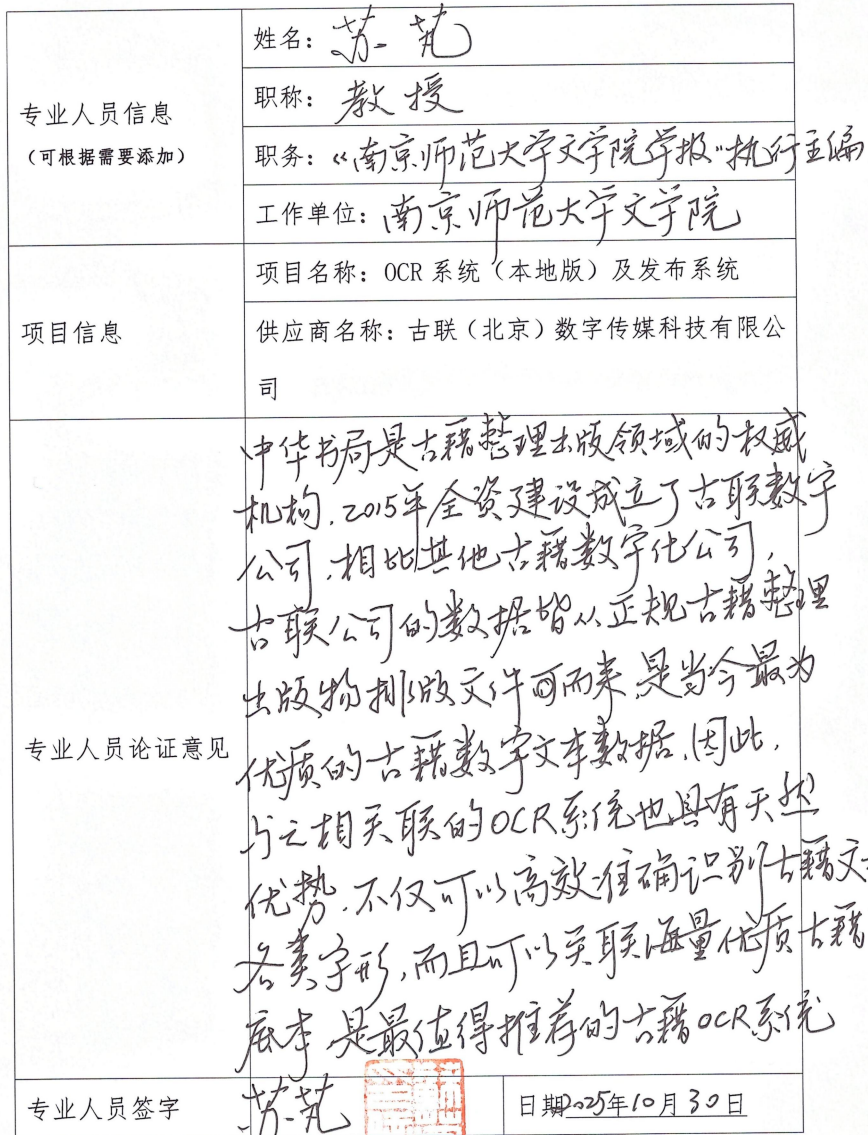 姓名：苏芃
职称：教授
专业人员信息
（可根据需要添加）
职务：《南京师范大学文学院学报》执行主编
工作单位：南京师范大学文学院
项目名称：OCR系统（本地版）及发布系统
项目信息
供应商名称：古联（北京）数字传媒科技有限公
司
中华书局是古籍整理出版领域的权威
机构，2015年全资建设成立了古联数字
公司，相比其他古籍数字化公司，
古联公司的数据皆从正规古籍整理
出版物排版文件而来，是当今最为
专业人员论证意见
优质的古籍数字文本数据，因此，
与之相关联的OCR系统也具有天然
优势，不仅可以高效准确识别古籍文
各类字形，而且可以关联海量优质古籍
底本，是最值得推荐的古籍OCR系统
专业人员签字
苏芃
日期2025年10月30日